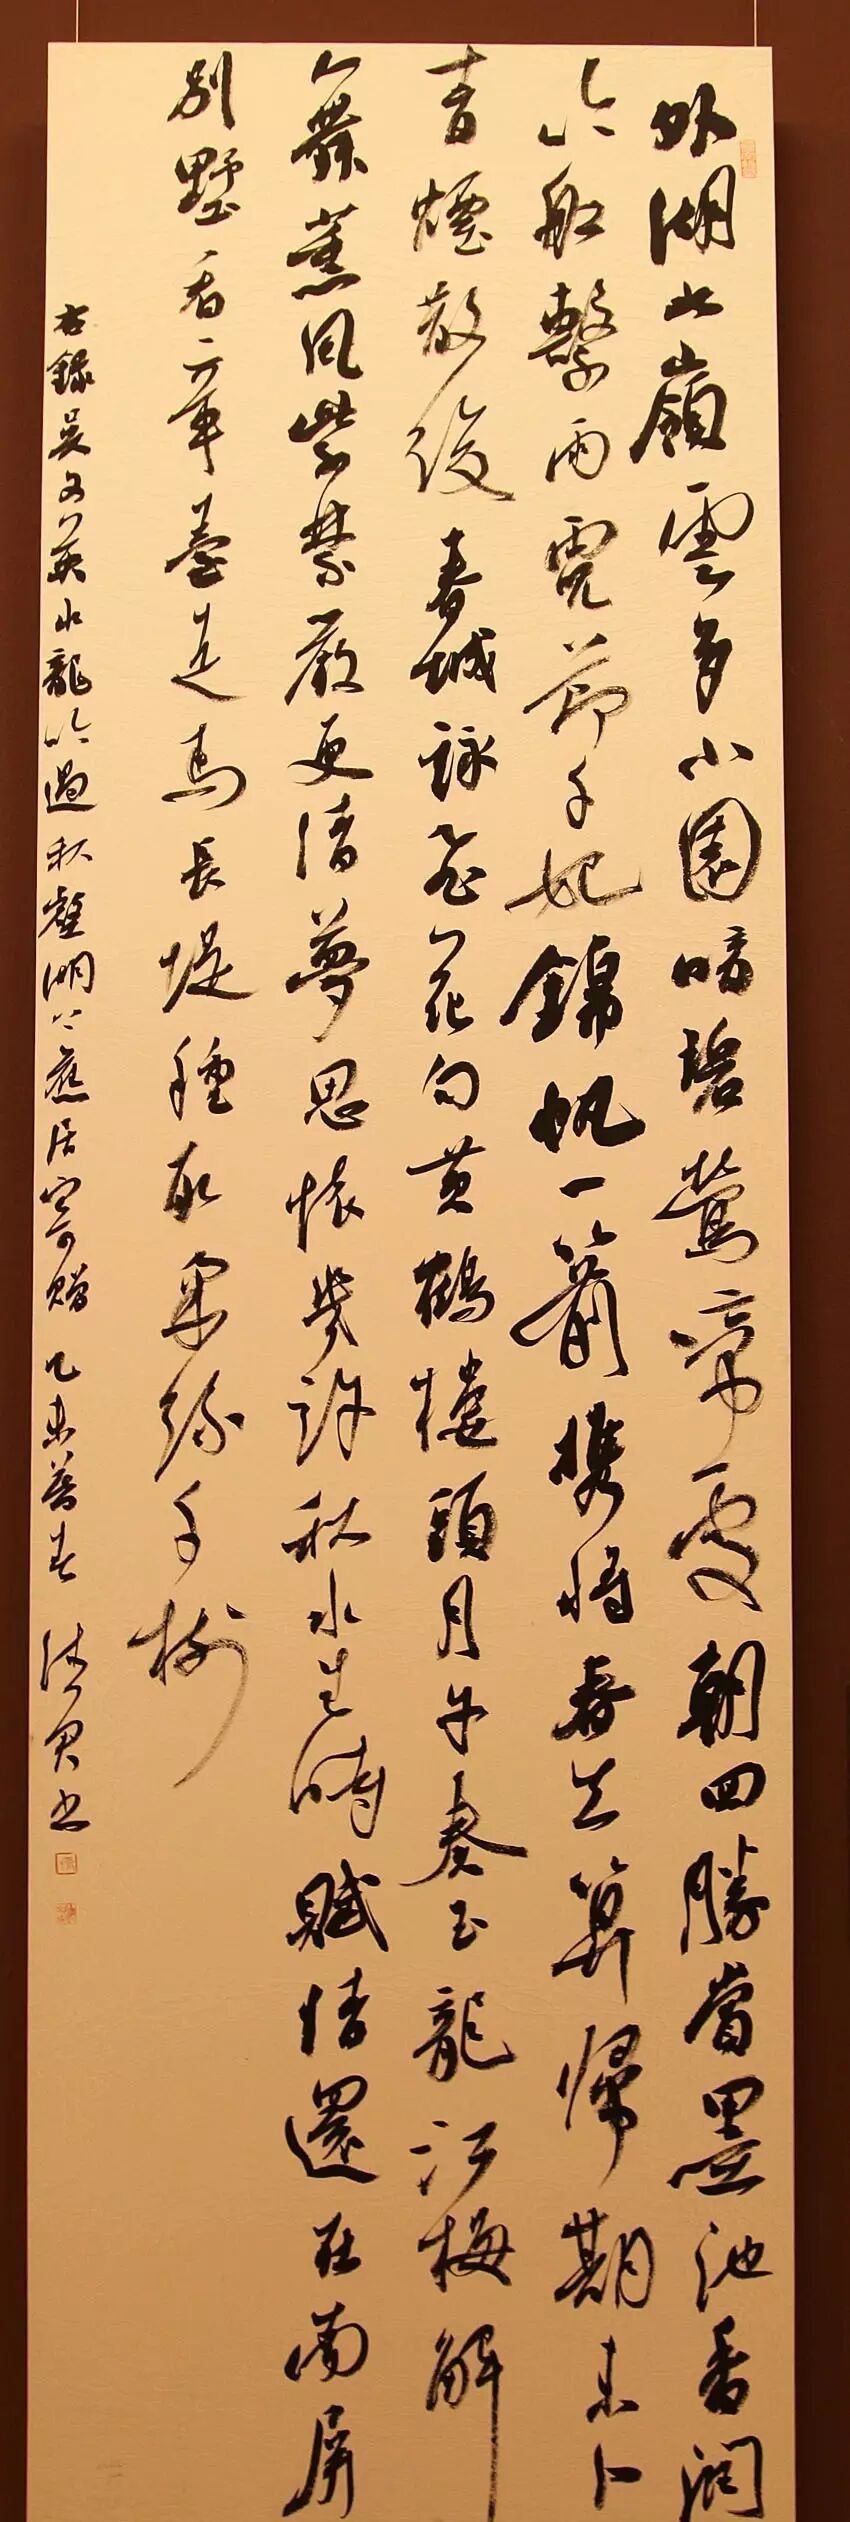 外湖北嶺雲多小園暗碧鶯啼處朝回勝賞墨池香潤
吟船繫雨霓節千妃錦帆一箭攜將春去算歸期未卜
青煙散後春城詠飛花句黃鶴樓頭月午奏玉龍江梅解
舞薰風紫禁嚴更清夢思懷幾許秋水生時賦情還在南屏
別墅看章臺走馬長堤種取柔絲千樹
右錄吳文英水龍吟過秋壑湖上舊居寄贈 乙未暮春 書